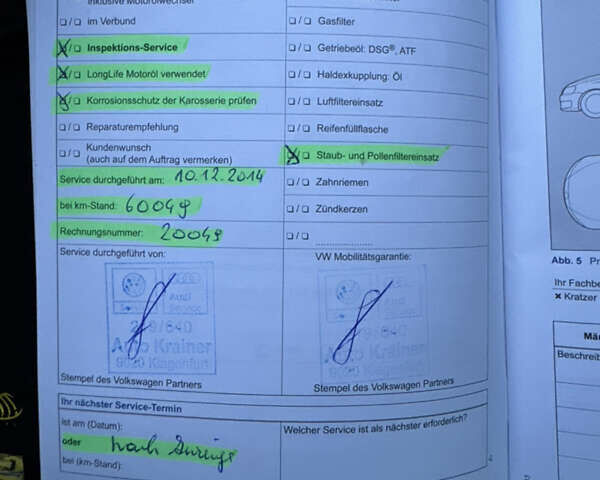 inklusive Motorölwechsel
❏/❏ im Verbund
❏/❏ Inspektions-Service
❏/❏ LongLife Motoröl verwendet
❏/❏ Korrosionsschutz der Karosserie prüfen
❏/❏ Reparaturempfehlung
❏/❏ Kundenwunsch
(auch auf dem Auftrag vermerken)
Service durchgeführt am: 10.12.2014
bei km-Stand: 60049
Rechnungsnummer: 20049
Service durchgeführt von:
Audi
Service
Auto Krainer
9020 Klagenfurt
Stempel des Volkswagen Partners
❏/❏ Gasfilter
❏/❏ Getriebeöl: DSG®, ATF
❏/❏ Haldexkupplung: Öl
❏/❏ Luftfiltereinsatz
❏/❏ Reifenfüllflasche
❏/❏ Staub- und Pollenfiltereinsatz
❏/❏ Zahnriemen
❏/❏ Zündkerzen
❏/❏
VW Mobilitätsgarantie:
Auto Krainer
9020 Klagenfurt
Stempel des Volkswagen Partners
Ihr nächster Service-Termin
ist am (Datum):
oder nach Anzeige
bei (km-Stand):
Welcher Service ist als nächster erforderlich?
Abb. 5
Ihr Fachbe
✖ Kratzer
Beschreib